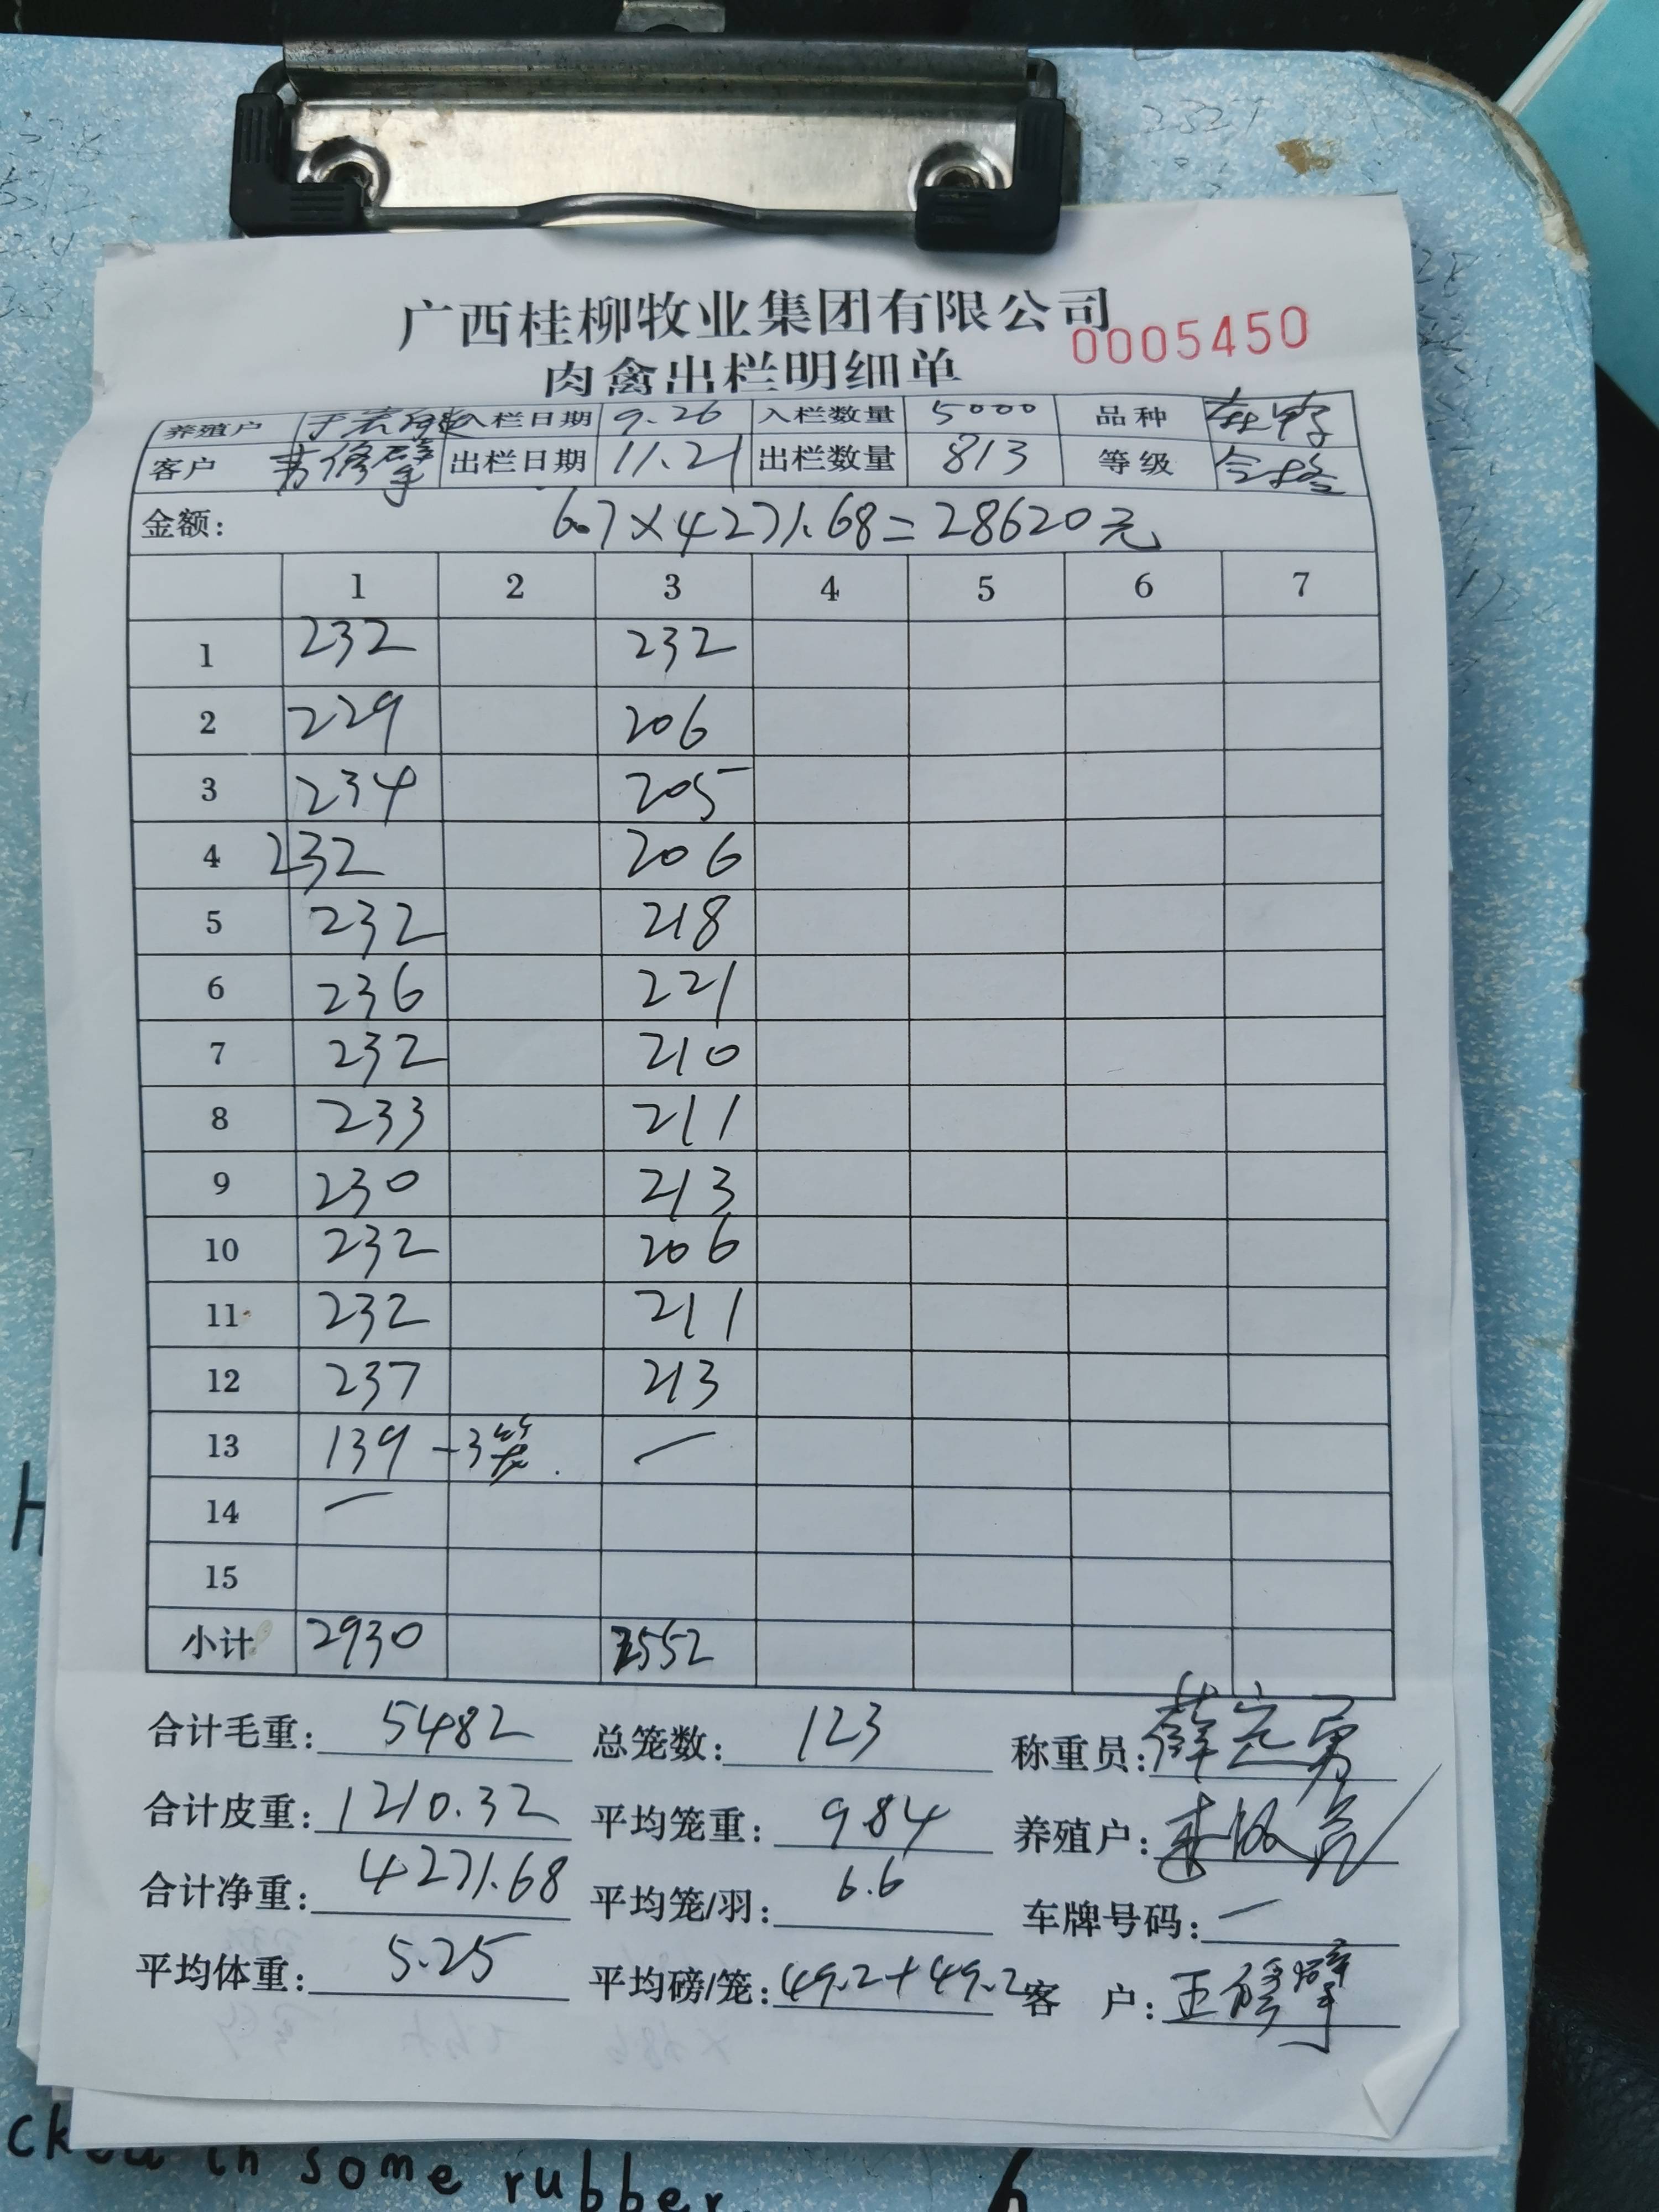 广西桂柳牧业集团有限公司
0005450
肉禽出栏明细单
养殖户 入栏日期 9.26 入栏数量 5000 品种
客户 出栏日期 11.21 出栏数量 813 等级 合格
金额: 6.7×4271.68=28620元
1 2 3 4 5 6 7
1 232 232
2 229 206
3 234 205
4 232 206
5 232 218
6 236 221
7 232 210
8 233 211
9 230 213
10 232 206
11 232 211
12 237 213
13 139 -3笼 一
14 一
15
小计 2930 2552
合计毛重: 5482 总笼数: 123 称重员:薛定勇
合计皮重: 1210.32 平均笼重: 984 养殖户:
合计净重: 4271.68 平均笼/羽: 6.6 车牌号码: 一
平均体重: 5.25 平均磅/笼: 49.2+49.2 客 户:
in some rubber